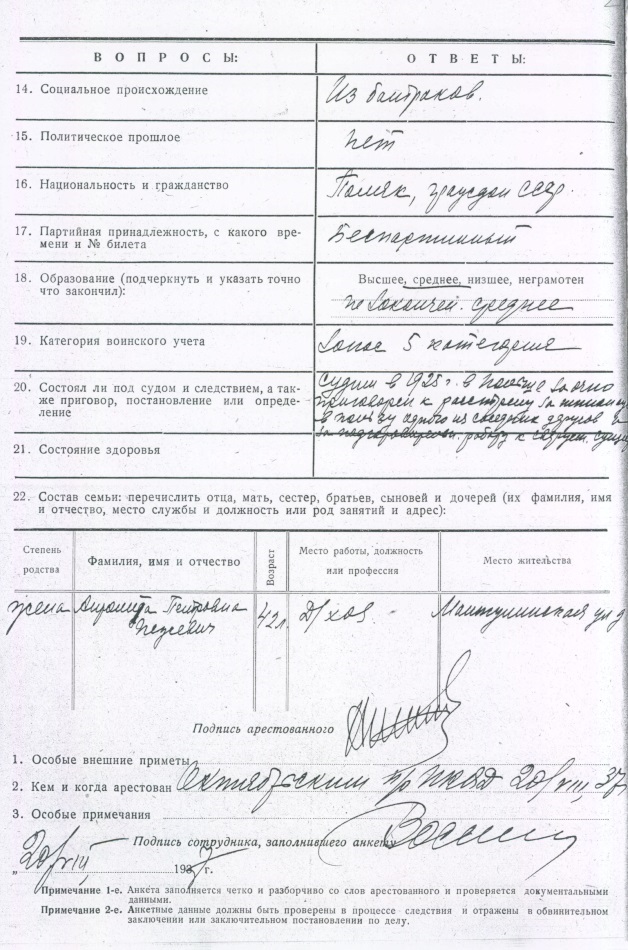 ВОПРОСЫ: ОТВЕТЫ:
14. Социальное происхождение Из батраков.
15. Политическое прошлое нет
16. Национальность и гражданство Поляк, граждан СССР.
17. Партийная принадлежность, с какого вре-
мени и № билета Беспартийный
18. Образование (подчеркнуть и указать точно Высшее, среднее, низшее, неграмотен
что закончил): не закончен. среднее
19. Категория воинского учета Запас 5 категория
20. Состоял ли под судом и следствием, а так- Судим в 1925 г. в Польше заочно
же приговор, постановление или опреде- приговорен к расстрелу за шпионаж
ление в пользу одного из соседних
21. Состояние здоровья
22. Состав семьи: перечислить отца, мать, сестер, братьев, сыновей и дочерей (их фамилия, имя
и отчество, место службы и должность или род занятий и адрес):
Степень родства Фамилия, имя и отчество Возраст Место работы, должность или профессия Место жительства
жена Петровна 42 л. Д/хоз Мантулинская ул д
Подпись арестованного
1. Особые внешние приметы
2. Кем и когда арестован Октябрьским р/о НКВД 20/VIII, 37г
3. Особые примечания
Подпись сотрудника, заполнившего анкету
„20/VIII 1937 г.
Примечание 1-е. Анкета заполняется четко и разборчиво со слов арестованного и проверяется документальными
данными.
Примечание 2-е. Анкетные данные должны быть проверены в процессе следствия и отражены в обвинительном
заключении или заключительном постановлении по делу.